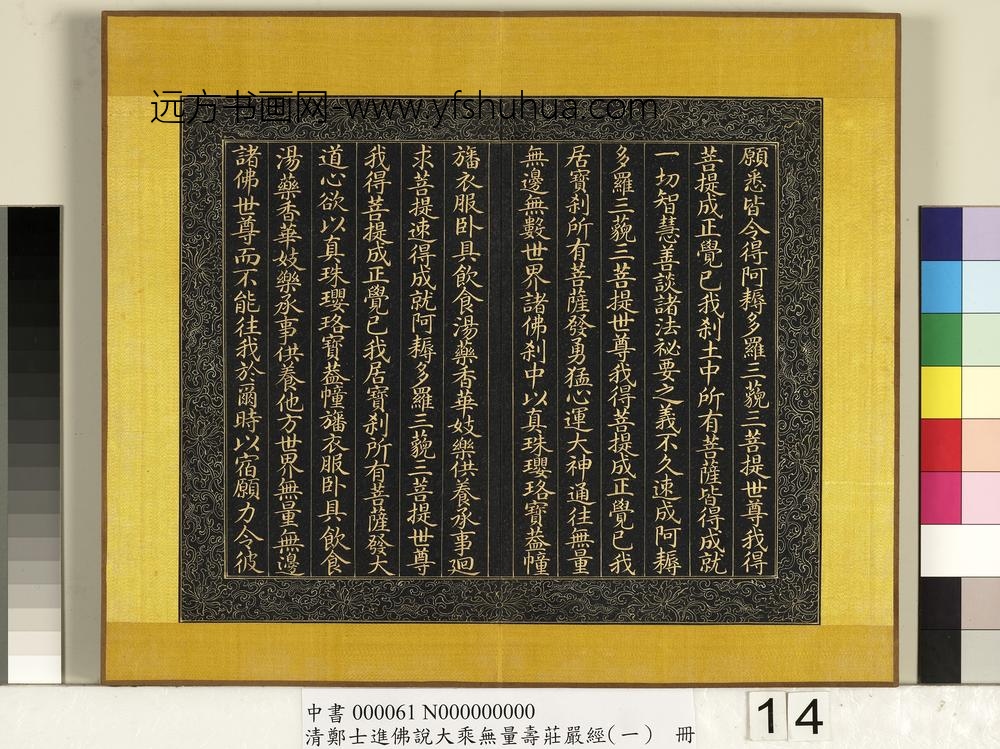 远方书画网-www.yfshuhua.com
願悉皆令得阿耨多羅三藐三菩提世尊我得
菩提成正覺已我剎土中所有菩薩皆得成就
一切智慧善談諸法祕要之義不久速成阿耨
多羅三藐三菩提世尊我得菩提成正覺已我
居寶剎所有菩薩發勇猛心運大神通往無量
無邊無數世界諸佛剎中以真珠瓔珞寶葢幢
旛衣服卧具飲食湯藥香華妓樂供養承事迴
求菩提速得成就阿耨多羅三藐三菩提世尊
我得菩提成正覺已我居寶剎所有菩薩發大
道心欲以真珠瓔珞寶葢幢旛衣服卧具飲食
湯藥香華妓樂承事供養他方世界無量無邊
諸佛世尊而不能往我於爾時以宿願力令彼
中書 000061 N000000000
清鄭士進佛說大乘無量壽莊嚴經(一) 冊
14